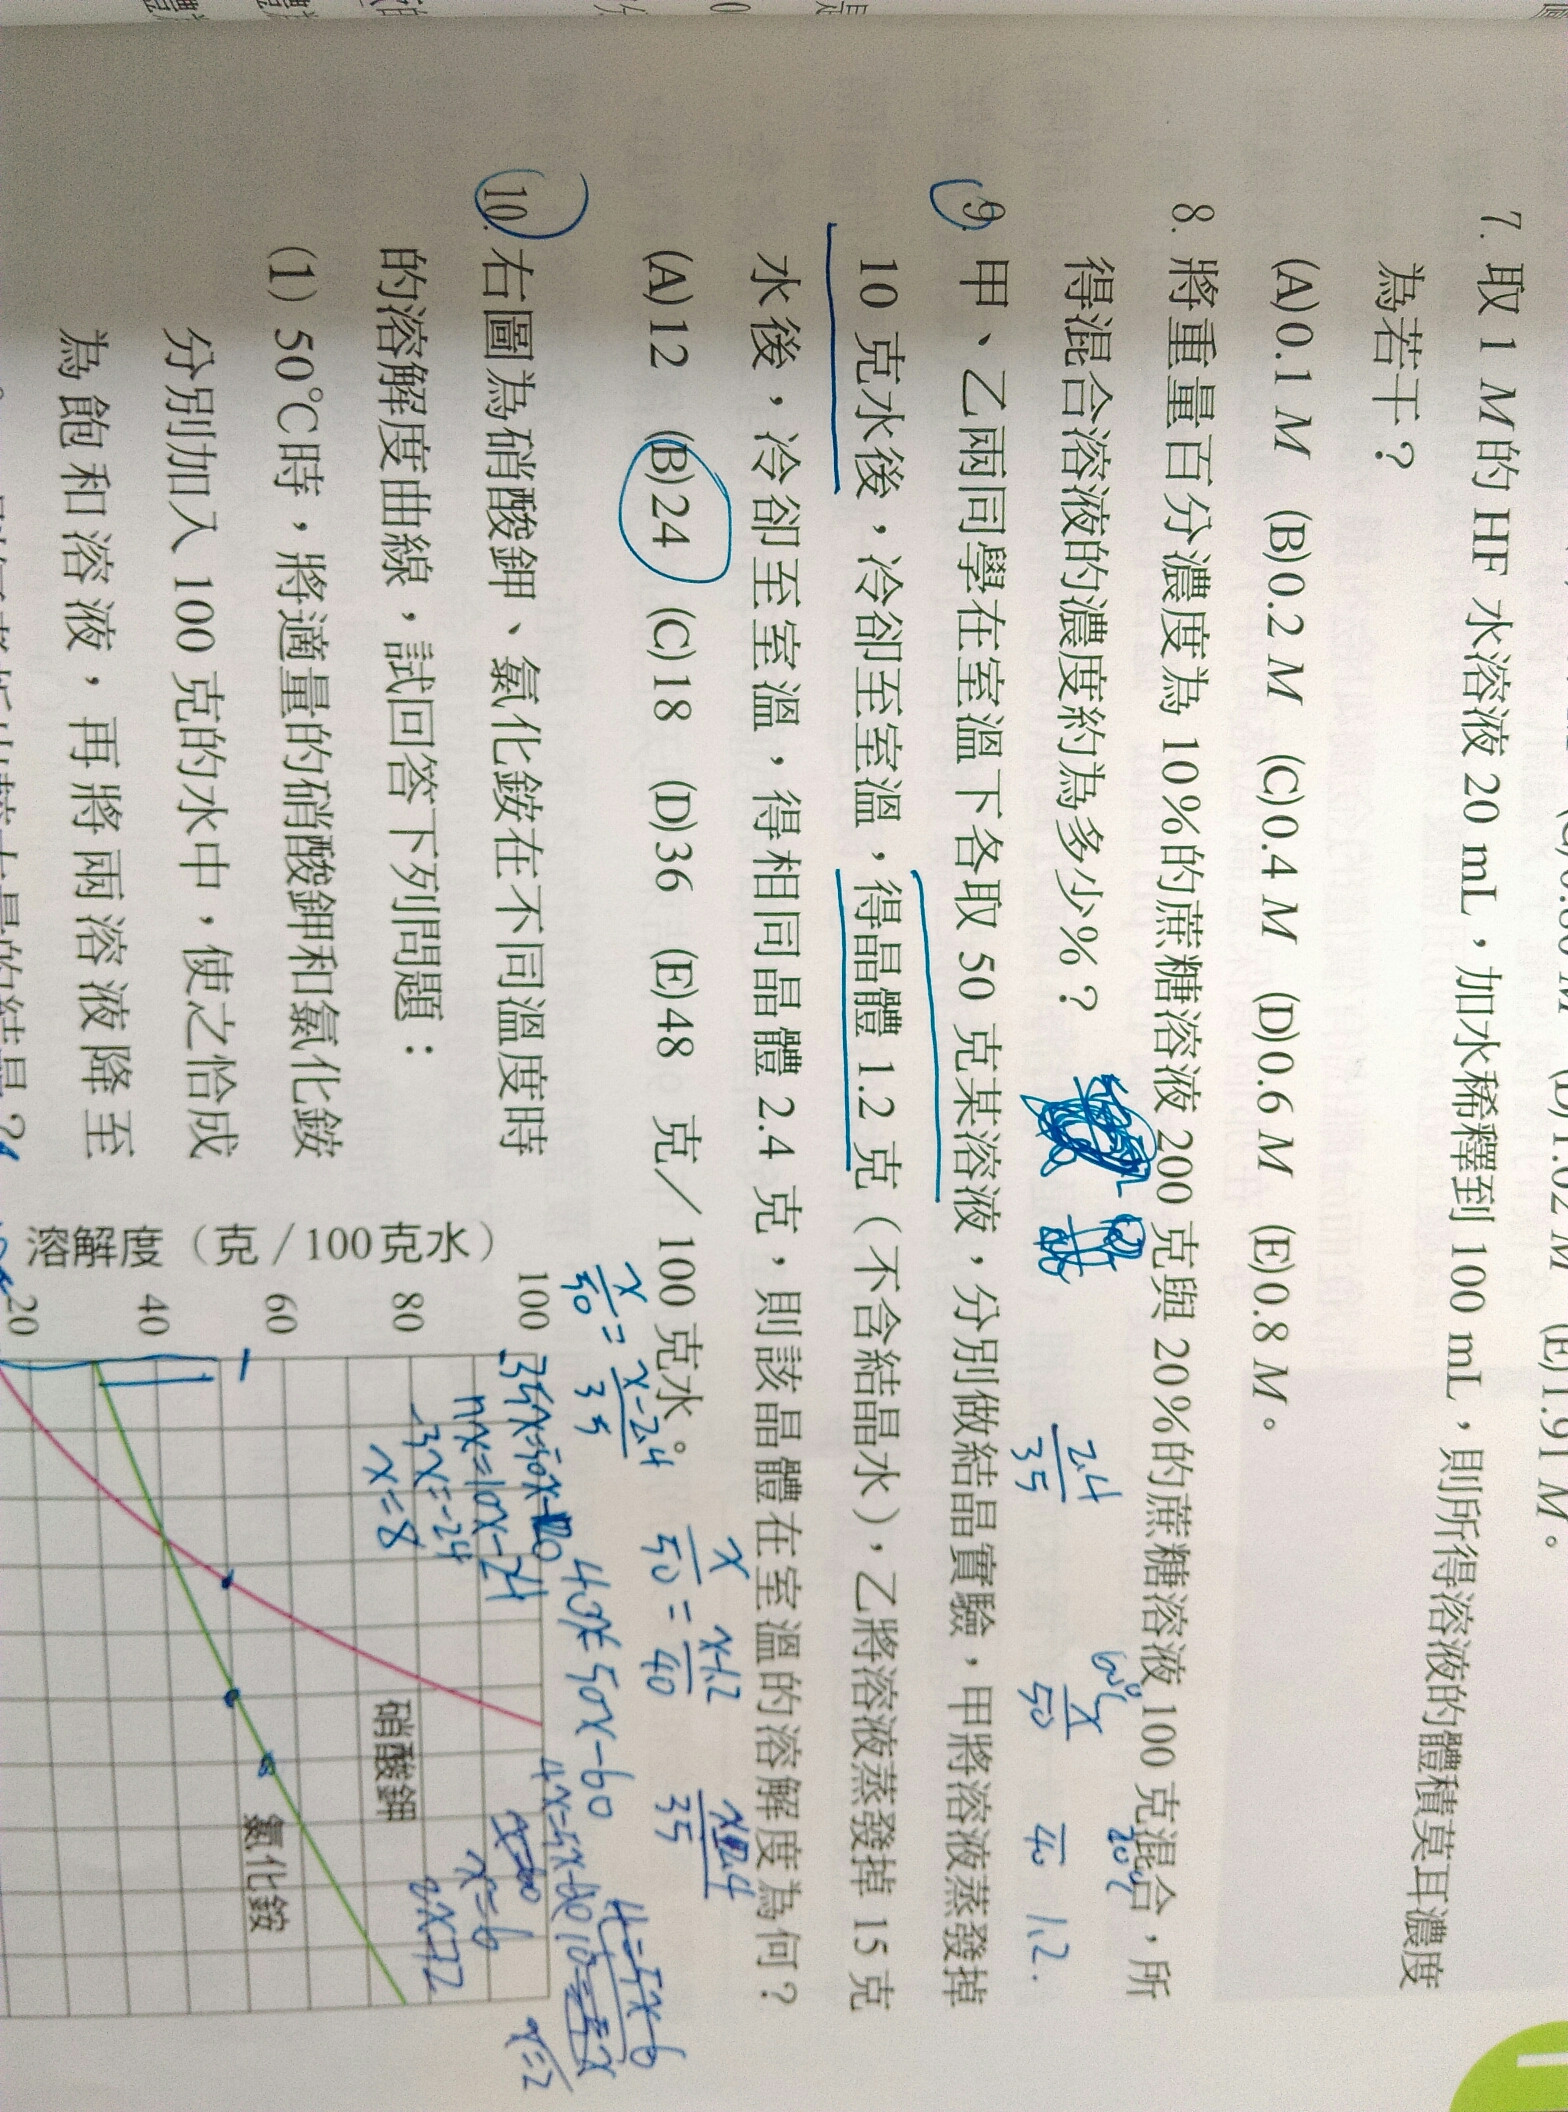 (E)1.91 M。
7. 取 1 M的 HF 水溶液 20 mL，加水稀釋到 100 mL，則所得溶液的體積莫耳濃度
為若干？
(A)0.1 M (B)0.2 M (C)0.4 M (D)0.6 M (E)0.8 M。
8. 將重量百分濃度為 10%的蔗糖溶液 200 克與 20%的蔗糖溶液 100 克混合，所
得混合溶液的濃度約為多少%？
9. 甲、乙兩同學在室溫下各取 50 克某溶液，分別做結晶實驗，甲將溶液蒸發掉
10 克水後，冷卻至室溫，得晶體 1.2 克（不含結晶水），乙將溶液蒸發掉 15 克
水後，冷卻至室溫，得相同晶體 2.4 克，則該晶體在室溫的溶解度為何？
(A)12 (B)24 (C)18 (D)36 (E)48 克／100 克水。
10. 右圖為硝酸鉀、氯化銨在不同溫度時
的溶解度曲線，試回答下列問題：
(1) 50℃時，將適量的硝酸鉀和氯化銨
分別加入 100 克的水中，使之恰成
為飽和溶液，再將兩溶液降至
溶解度（克/100克水）
100
80
60
40
20
硝酸鉀
氯化銨
2.4/35
x/50
40
1.2
x/50 = x-2.4/35
x/50 = x-1.2/40
x-2.4/35
35x=50x-120
7x=10x-24
-3x=-24
x=8
40x=50x-60
x=6